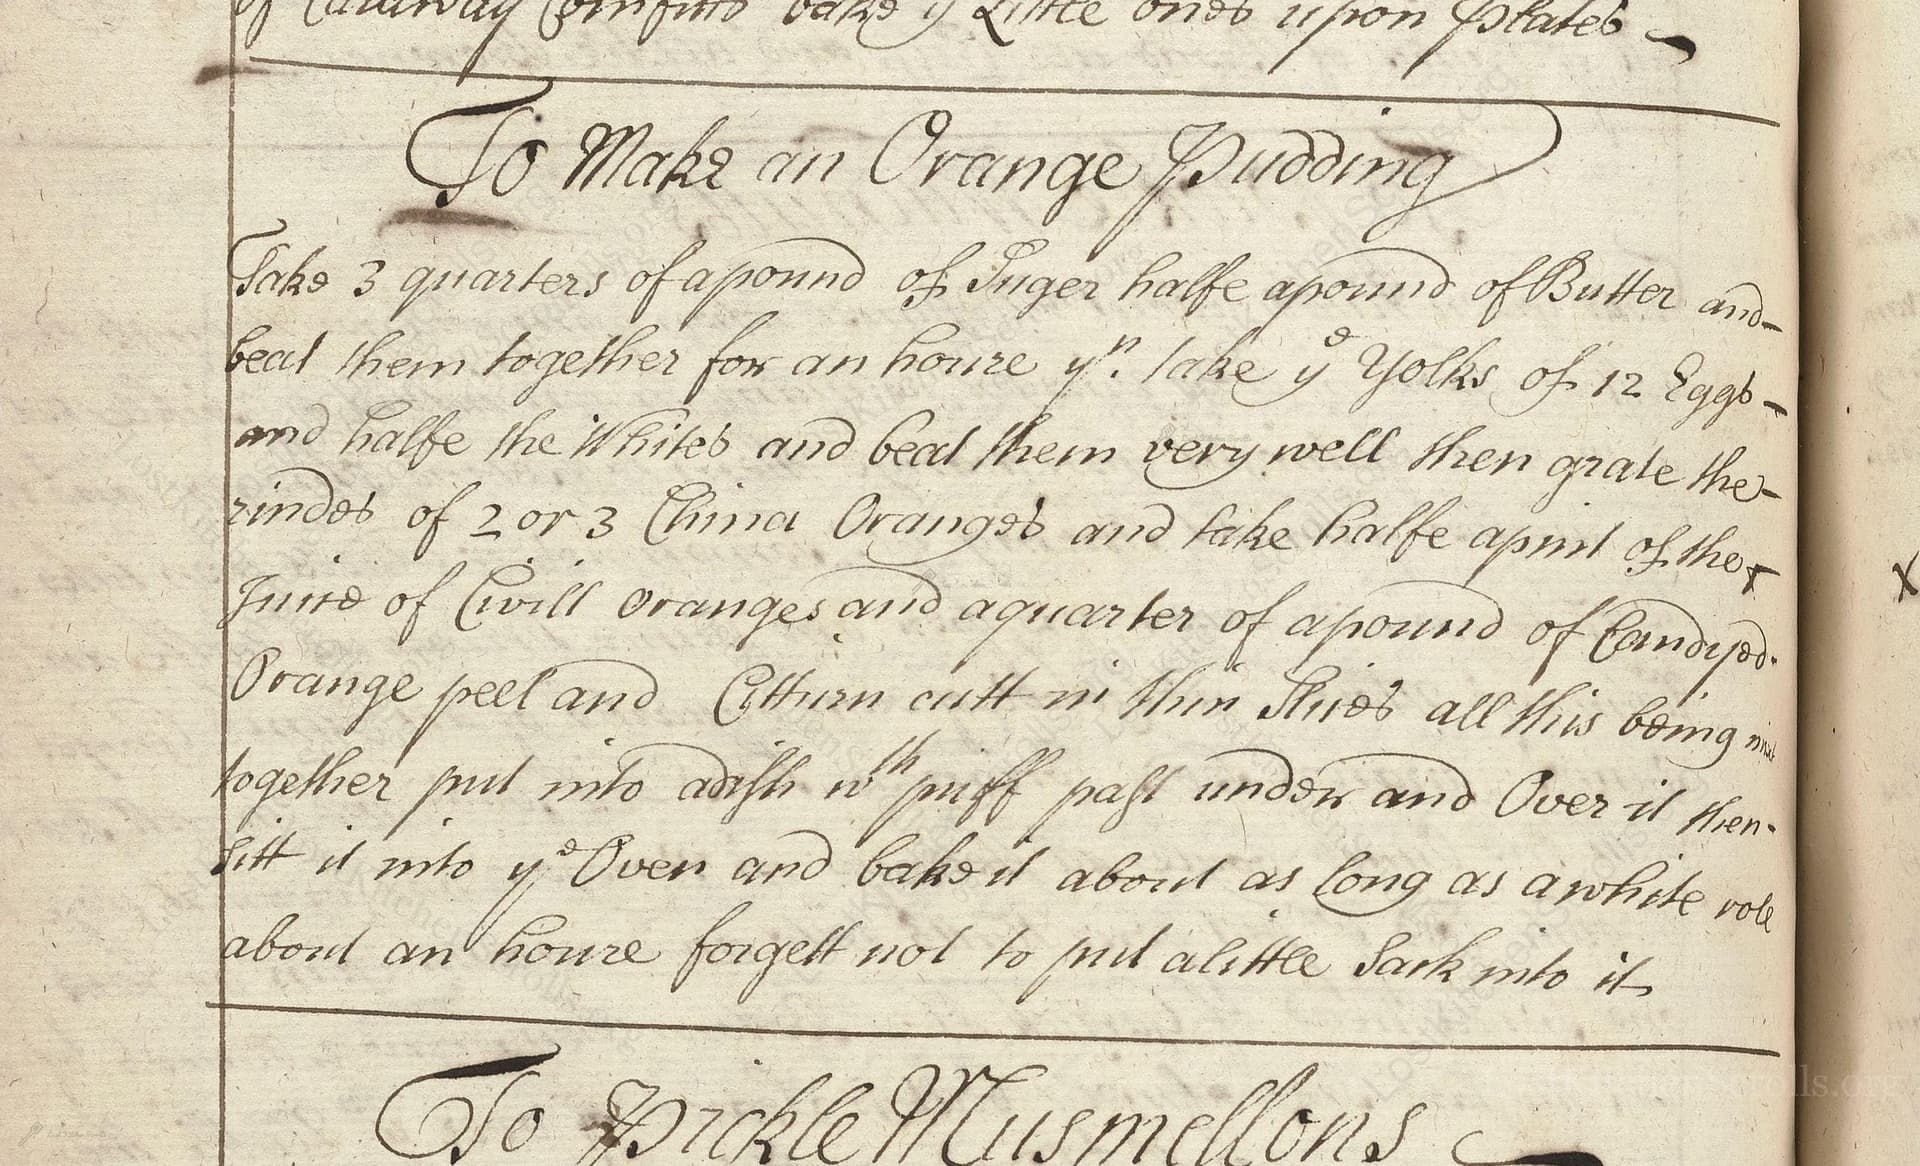 of Carraway Comfitts bake ye Little ones upon Plates
To Make an Orange Pudding
Take 3 quarters of a pound of Suger halfe a pound of Butter and
beat them together for an houre yn. take ye Yolks of 12 Eggs
and halfe the Whites and beat them very well then grate the
rindes of 2 or 3 China Oranges and take halfe a pint of the
Juice of Civill oranges and a quarter of a pound of Candyed
Orange peel and Citturn cutt in thin Slices all this being mixt
together put into a dish wth puff past under and Over it then
sitt it into ye Oven and bake it about as Long as a white pott
about an houre forgett not to put a little Sack into it
To Pickle Musmellons